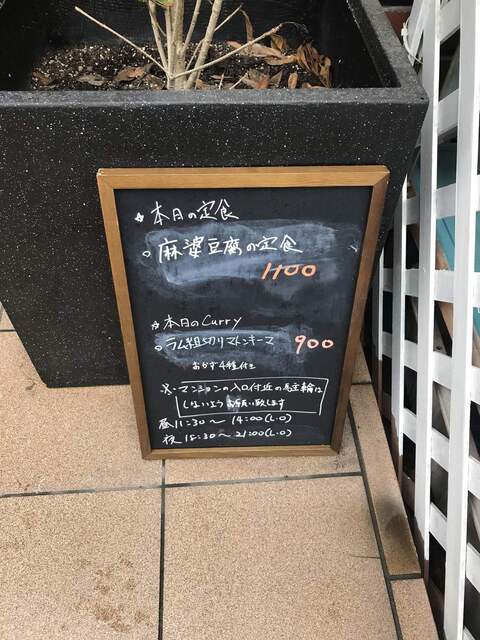 ☆本日の定食
○麻婆豆腐の定食
1100
☆本日のCurry
○ラム粗切りマトンキーマ 900
おかず4種付き
※・マンションの入口付近の駐輪は
しないようお願い致します
昼11:30〜14:00(L.O)
夜18:30〜21:00(L.O)